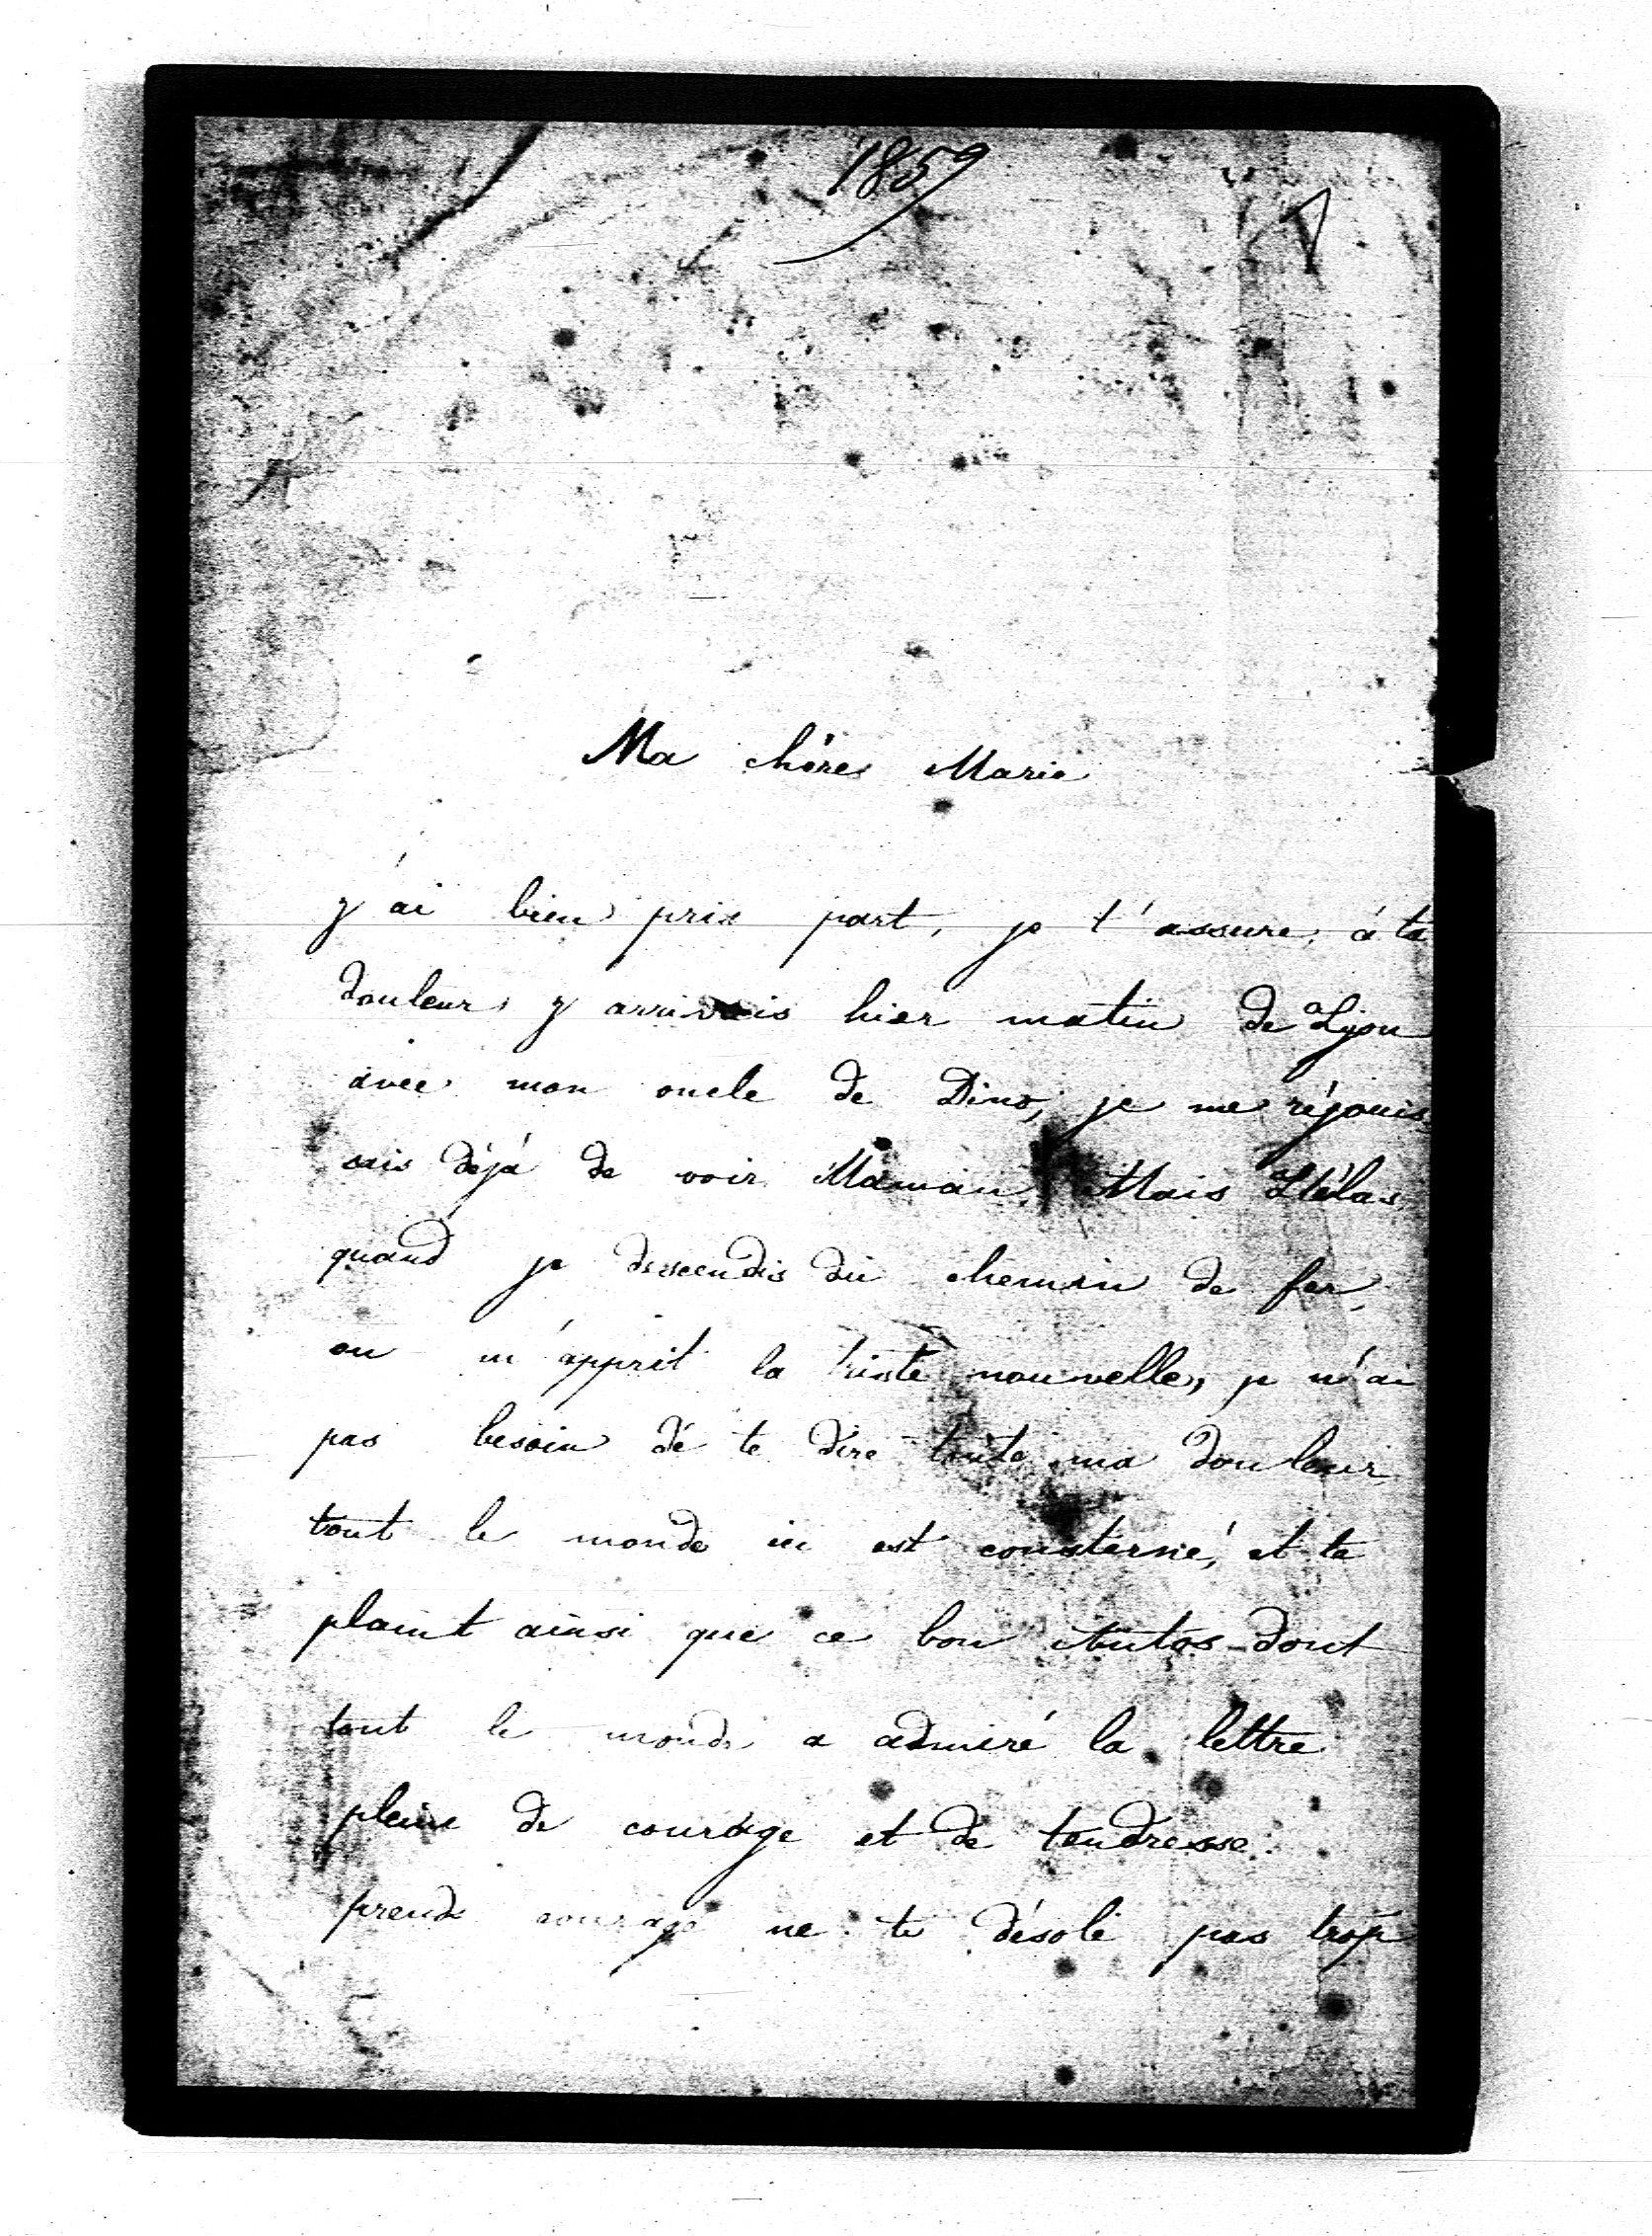 1859
Ma chère Marie
j'ai bien pris part, je t'assure, à ta
douleur, j'arrivais hier matin de Lyon
avec mon oncle de Dino, je me réjouis
sais déjà de voir Maman, Mais Hélas
quand je descendis du chemin de fer,
on m'apprit la triste nouvelle, je n'ai
pas besoin de te dire toute ma douleur
tout le monde ici est consterné, et te
plaint ainsi que ce bon Antos dont
tout le monde a admiré la lettre
pleine de courage et de tendresse.
prends courage ne te désole pas trop